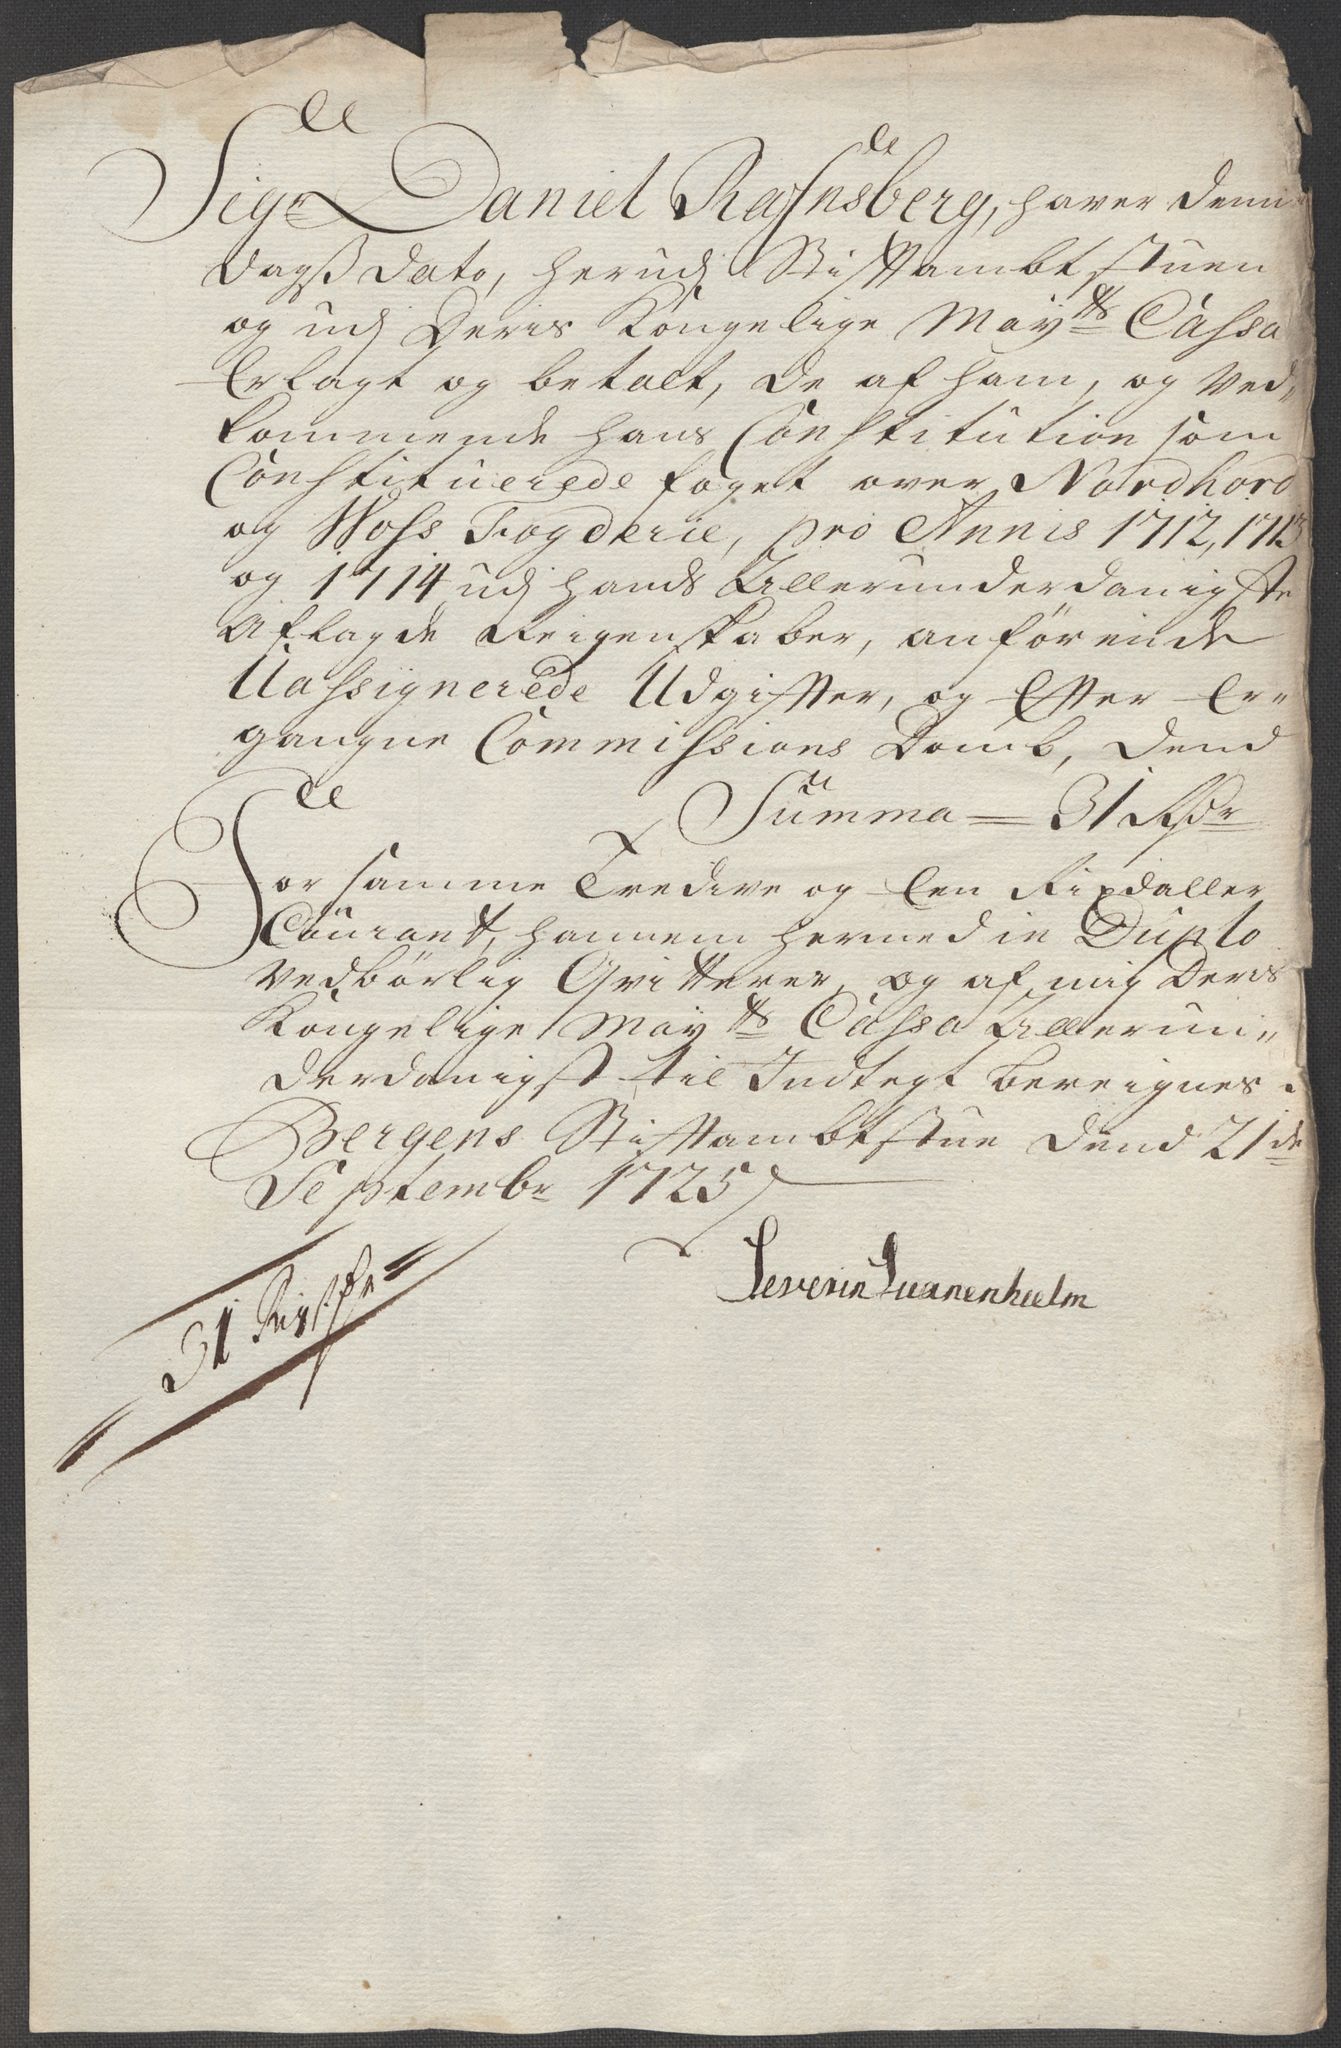 Sigr Daniel Rafnsberg, haver denne
dags dato, herudj Stiftambtstuen
og udj Deris Kongelige Mayts Cassa
Erlagt og betalt, de af ham, og Ved-
kommende hans Constitution som
Constituerede foget over Nordhord
og Woss Fogderie, pro Annis 1712, 1713
og 1714 udj hands Allerunderdanigste
Aflagde Reigenskaber, anförende
Uassignerede Udgiffter, og Effter Er-
gangne Commissions Domb, dend
Summa = 31 Rdr
For samme Tredive og Een Rixdaller
Courant, hannem hermed in Duplo
vedbörlig Qvitterer, og af mig Deris
Kongelige Mayts Cassa Allerun-
derdanigst til Indtegt bereignes.
Bergens Stiftambtstue dend 21de
Septembr 1725
Severin Suanenhielm
31